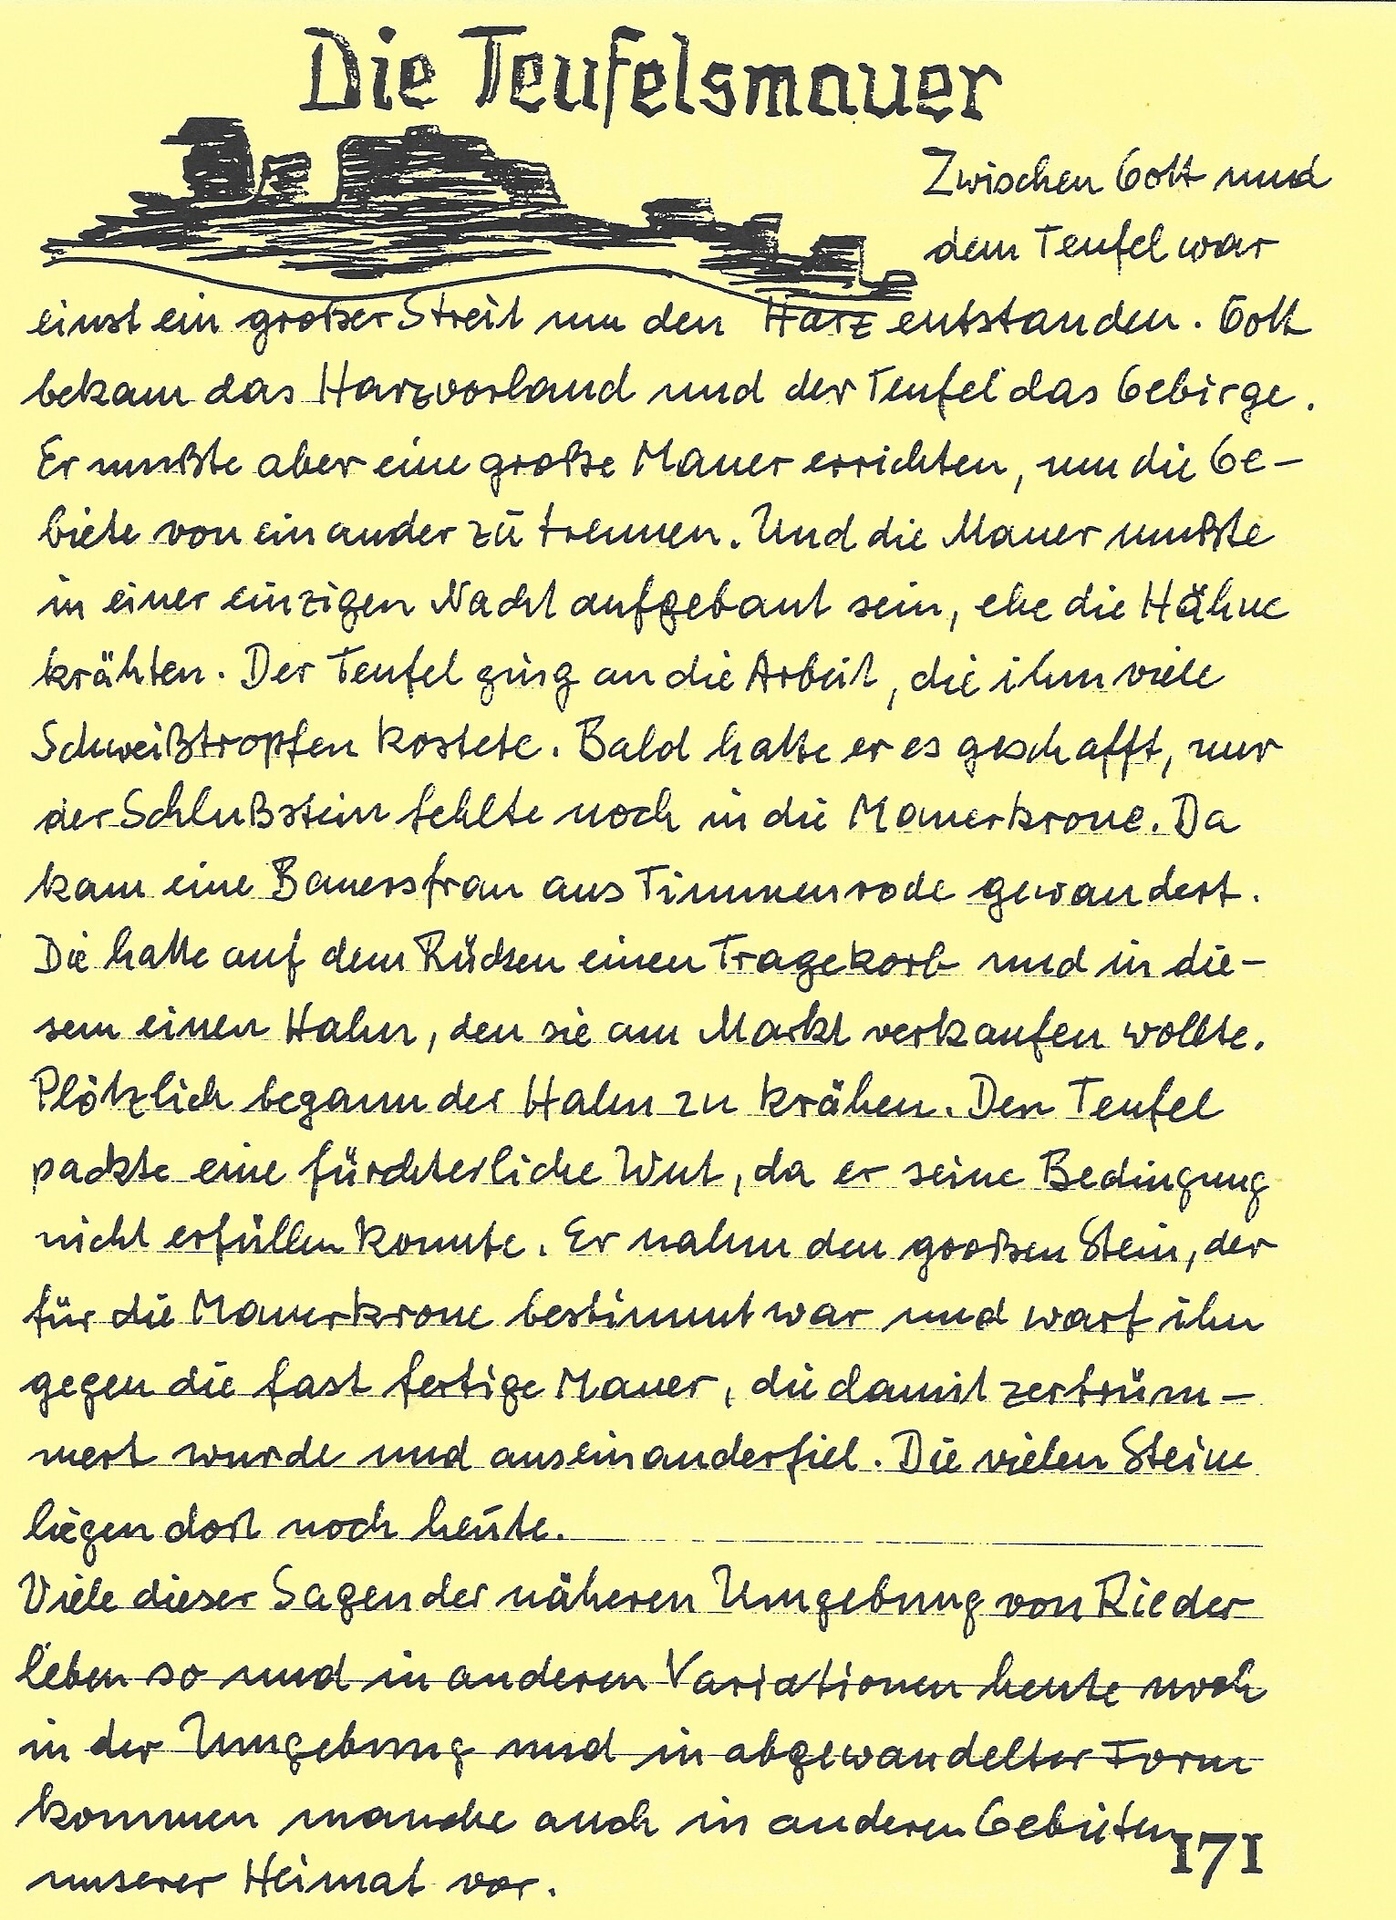 Die Teufelsmauer
Zwischen Gott und
dem Teufel war
einst ein großer Streit um den Harz entstanden. Gott
bekam das Harzvorland und der Teufel das Gebirge.
Er mußte aber eine große Mauer errichten, um die Ge-
biete voneinander zu trennen. Und die Mauer mußte
in einer einzigen Nacht aufgebaut sein, ehe die Hähne
krähten. Der Teufel ging an die Arbeit, die ihm viele
Schweißtropfen kostete. Bald hatte er es geschafft, nur
der Schlußstein fehlte noch in die Mauerkrone. Da
kam eine Bauersfrau aus Timmenrode gewandert.
Die hatte auf dem Rücken einen Tragekorb und in die-
sem einen Hahn, den sie am Markt verkaufen wollte.
Plötzlich begann der Hahn zu krähen. Den Teufel
packte eine fürchterliche Wut, da er seine Bedingung
nicht erfüllen konnte. Er nahm den großen Stein, der
für die Mauerkrone bestimmt war und warf ihn
gegen die fast fertige Mauer, die damit zertrüm-
mert wurde und auseinanderfiel. Die vielen Steine
liegen dort noch heute.
Viele dieser Sagen der näheren Umgebung von Rieder
leben so und in anderen Variationen heute noch
in der Umgebung und in abgewandelter Form
kommen manche auch in anderen Gebieten
unserer Heimat vor.
171